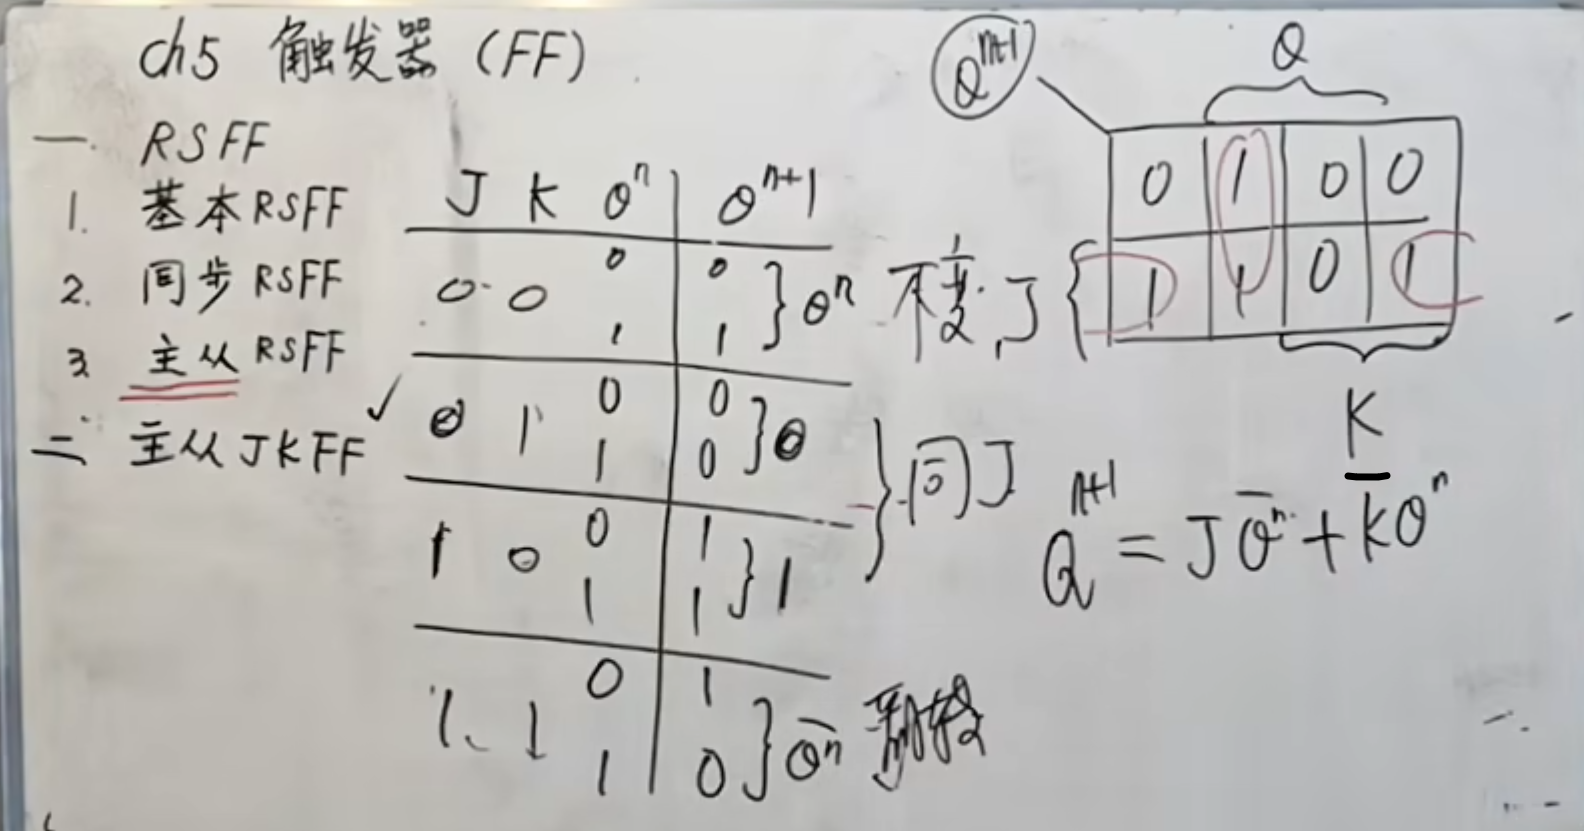 ch5 触发器 (FF)
一 RSFF
1. 基本RSFF
2. 同步RSFF
3. 主从RSFF
二 主从JKFF
J K Qⁿ Qⁿ⁺¹
0 0 0 0
1 1 } Qⁿ 不变
✓ 0 1 0 0
1 0 } 0
1 0 0 1
1 1 } 1
} 同J
1 1 0 1
1 0 } Q̅ⁿ 翻转
Qⁿ⁺¹
Q
0 1 0 0
J { 1 1 0 1
K
Qⁿ⁺¹ = JQ̅ⁿ + K̅Qⁿ